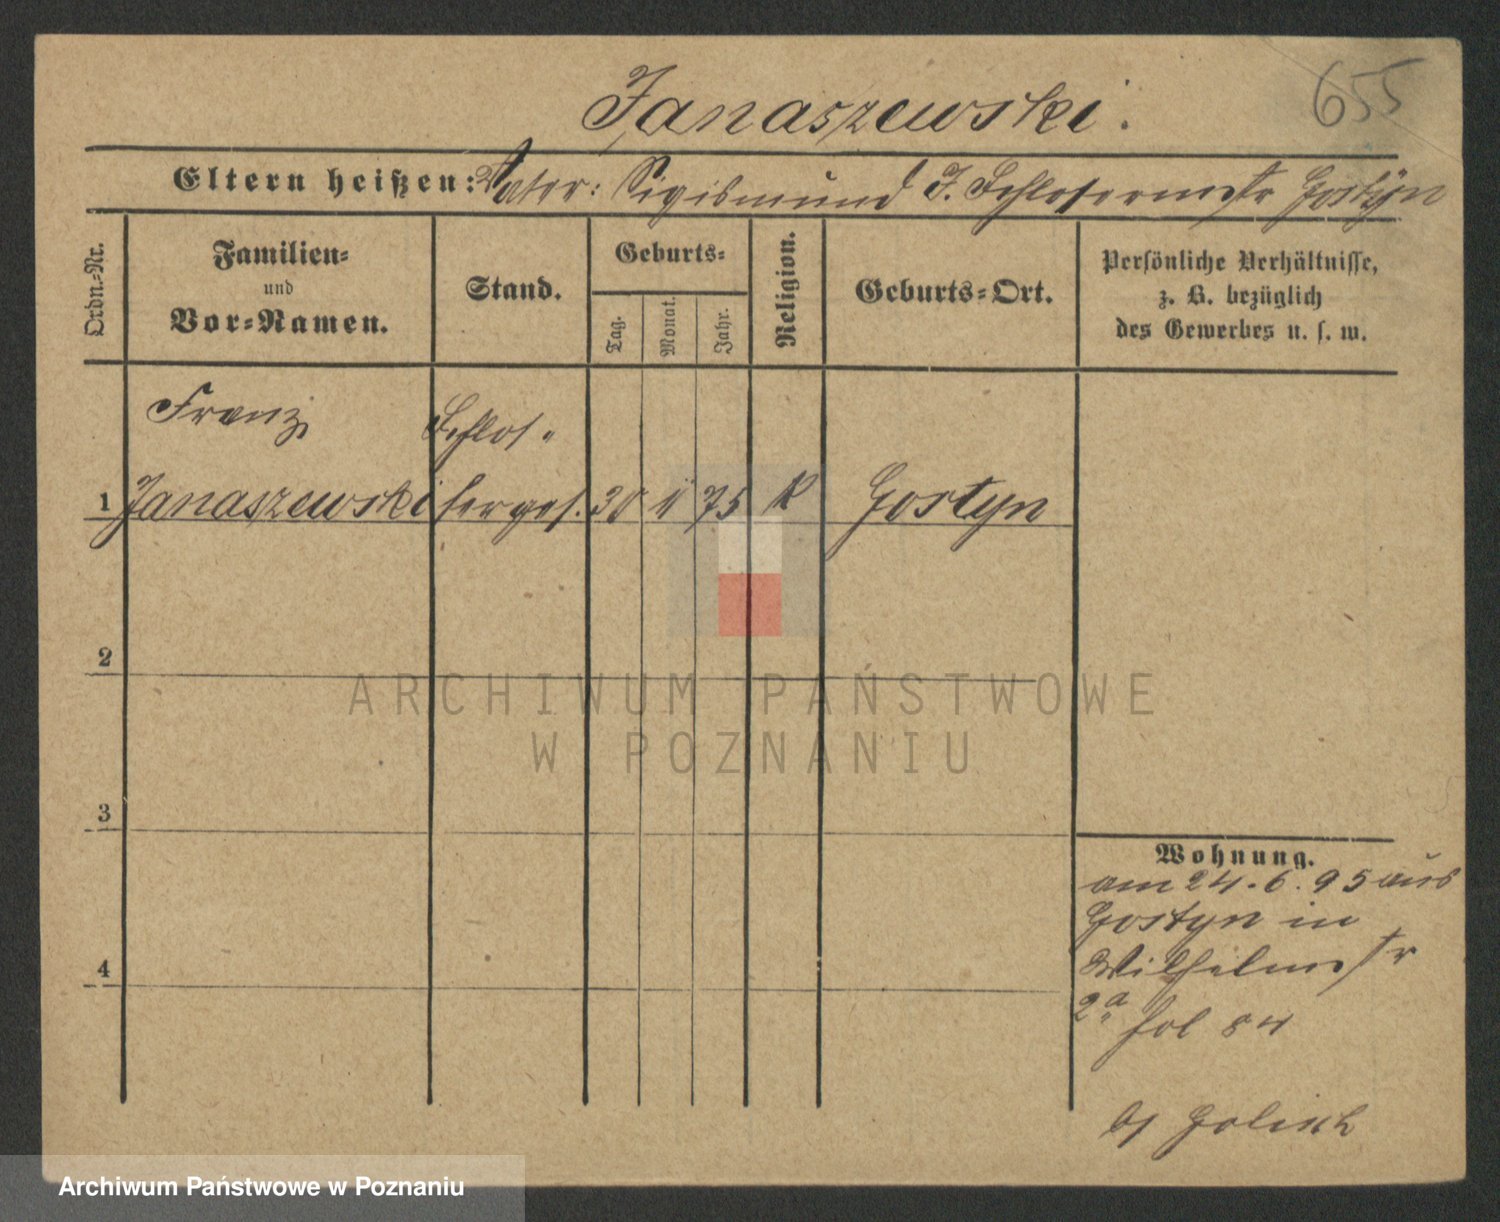 Janaszewski.
655
Eltern heißen: Vater: Sigismund J. Schlossermstr Gostyn
Ordn.-Nr.
Familien-
und
Vor-Namen.
Stand.
Geburts-
Tag.
Monat.
Jahr.
Religion.
Geburts-Ort.
Persönliche Verhältnisse,
z. B. bezüglich
des Gewerbes u. s. w.
Franz Schlos-
1 Janaszewski serges. 30 75 k Gostyn
2
ARCHIWUM PAŃSTWOWE
W POZNANIU
3
Wohnung.
am 24.6.95 aus
Gostyn in
4
Wilhelmstr
2a fol 84
Golisch
Archiwum Państwowe w Poznaniu